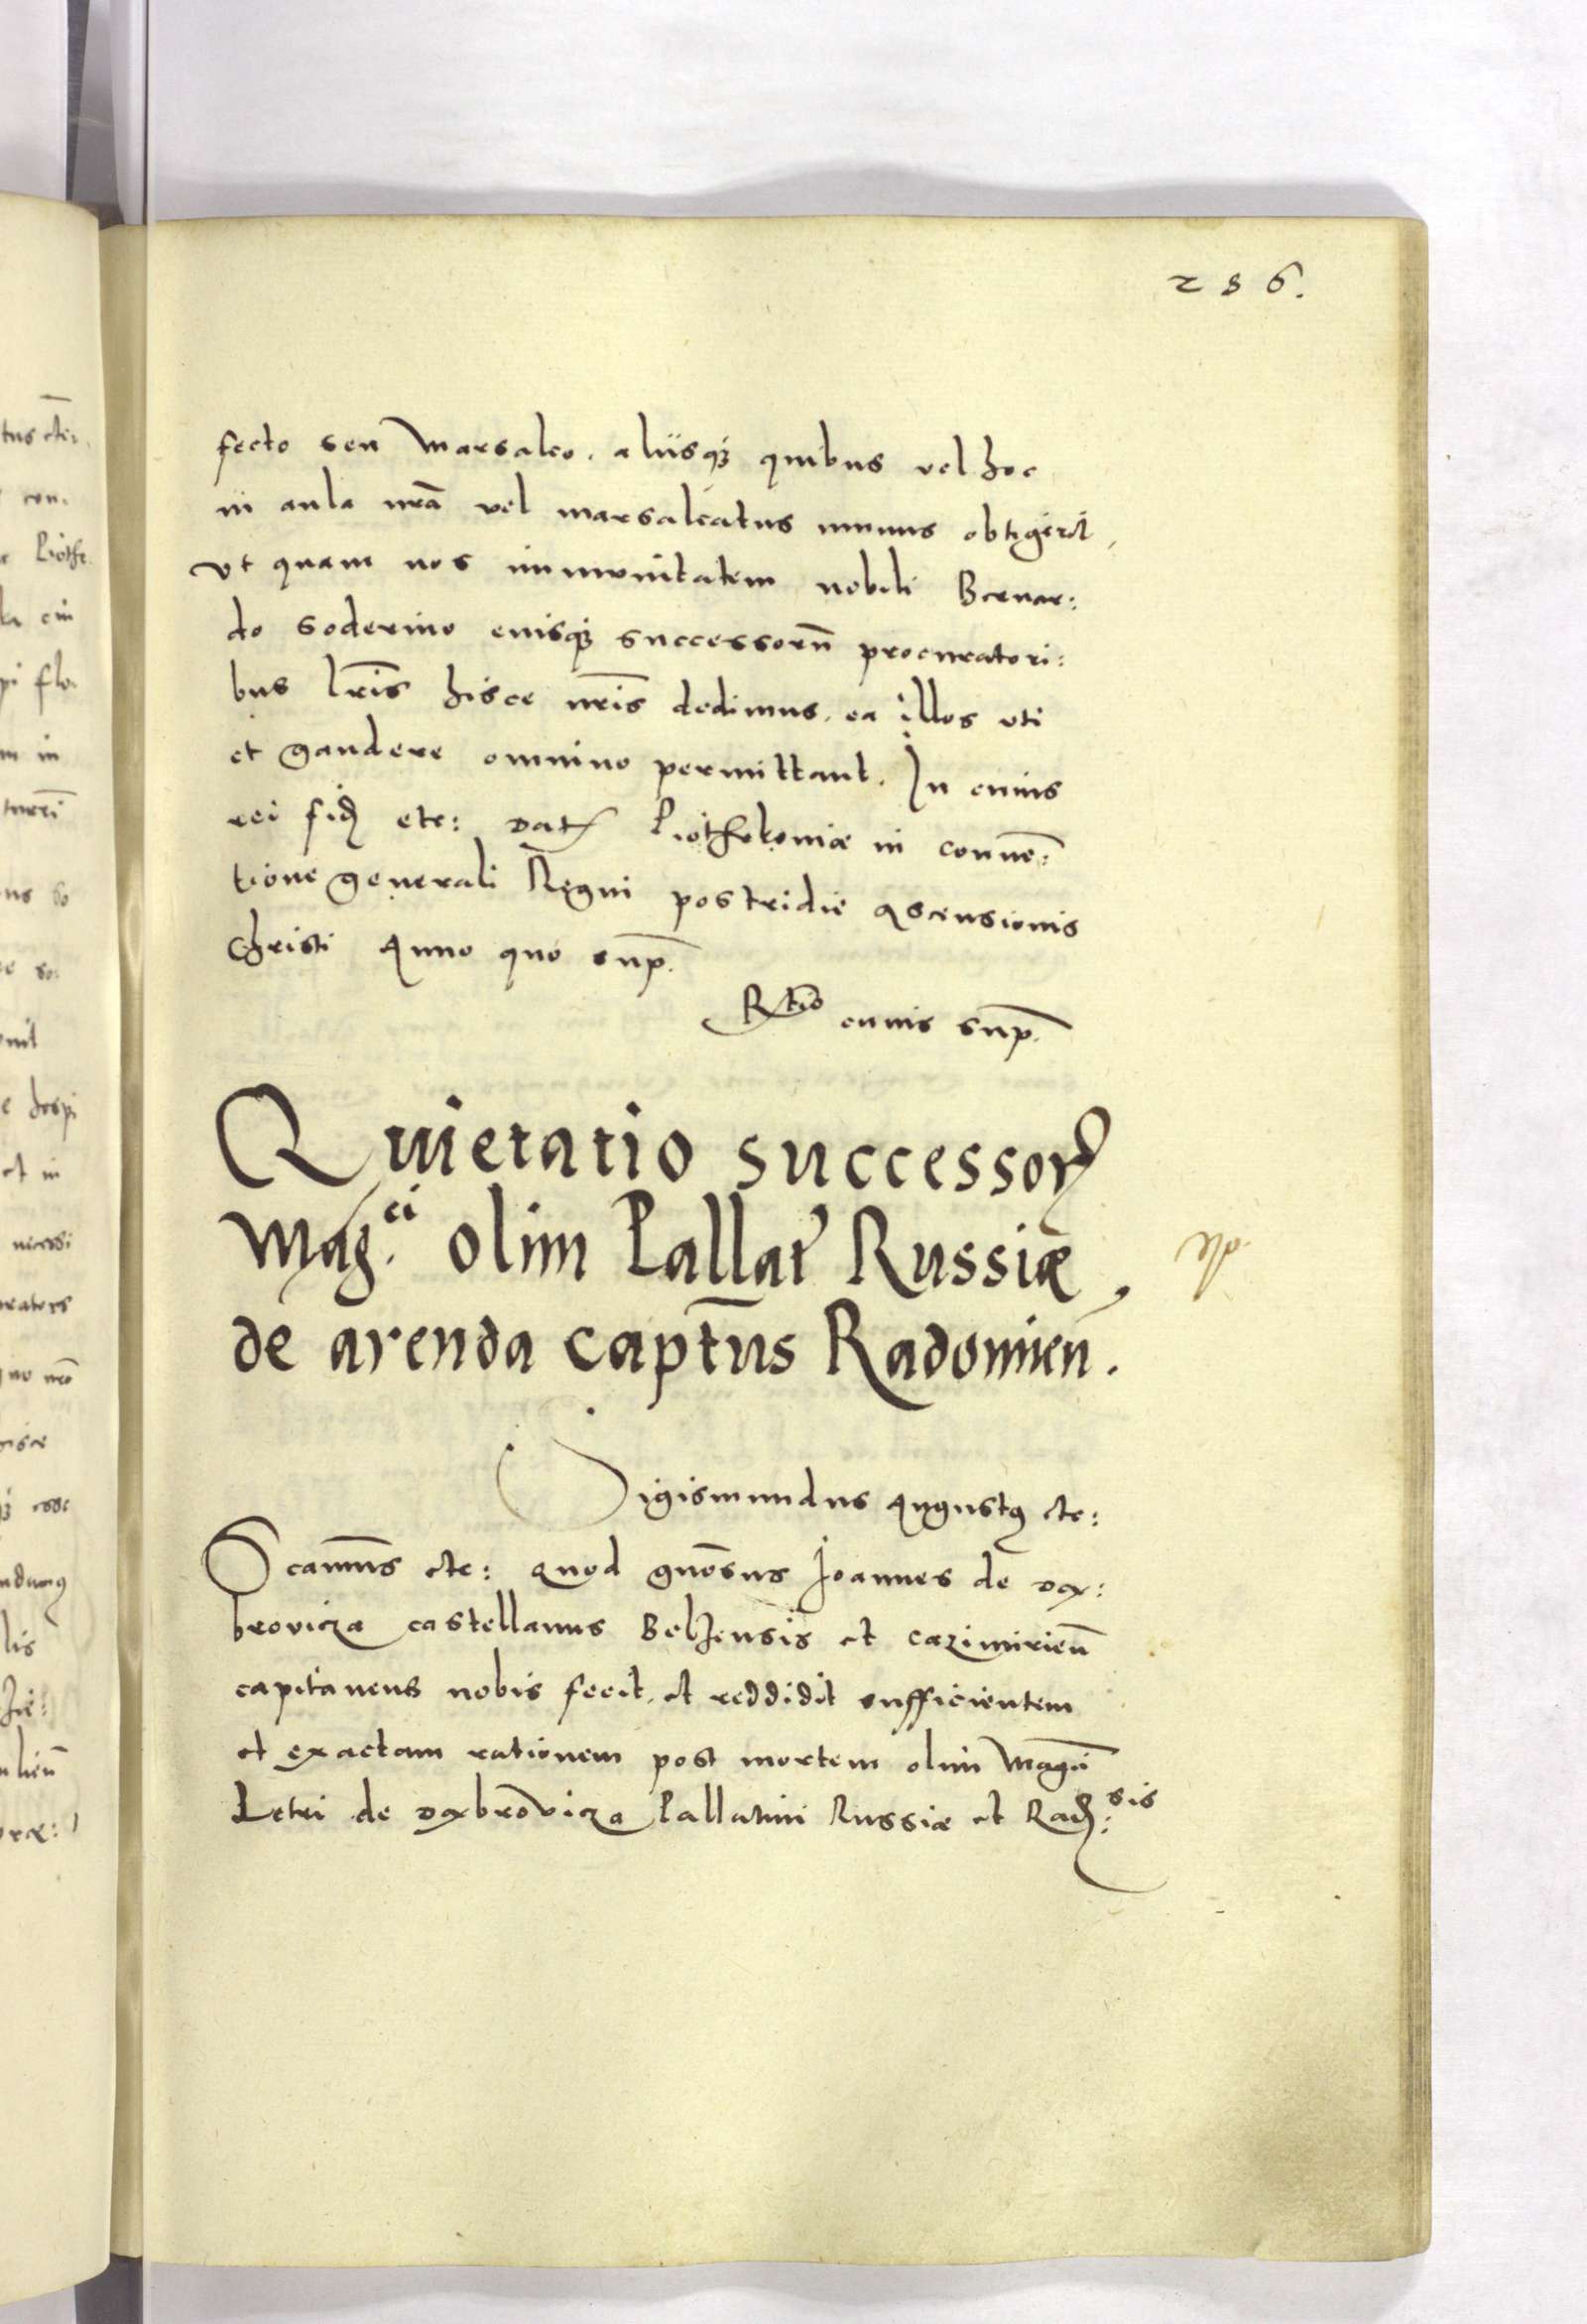 286.
fecto seu Marsalco. aliisq́ꝫ quibus vel hoc
in aula nr̃a vel marsalcatus munus obtigerit,
vt quam nos immunitatem nobili Bernar:
do Soderino eiusq́ꝫ successorũ procuratori:
bus lr̃is hisce nr̃is dedimus. ea illos uti
et gaudere omnino permittant. In cuius
rei fidꝫ etc: Datꝭ Piothrkoniæ in conuẽ:
tione generali Regni postridie Ascensionis
Christi Anno quo sup̃.
R̃tio cuius sup̃.
Quietatio successorꝝ
Mag.ci olim Pallat' Russiæ,
de arenda capt̃us Radomieñ.
Sigismundus Augustꝯ etc:
Sca̅mus etc: Quod gnõsus Joannes de Dą:
browicza castellanus Belzensis et Cazimirieñ
capitaneus nobis fecit. et reddidit sufficientem
et exactam rationem post mortem olim Mag̃ci
Petri de Dąbrowicza Pallatini Russiæ et Radꝫ:sis